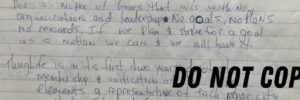 For a matter of hours that was with no
organization and leadership. No goals, no plans
no rewards. If we plan & strive for a goal
as a nation we can & we will have it.
Thuglife is in its first two years
membership & unification of
elements & representative of each minority
DO NOT COP